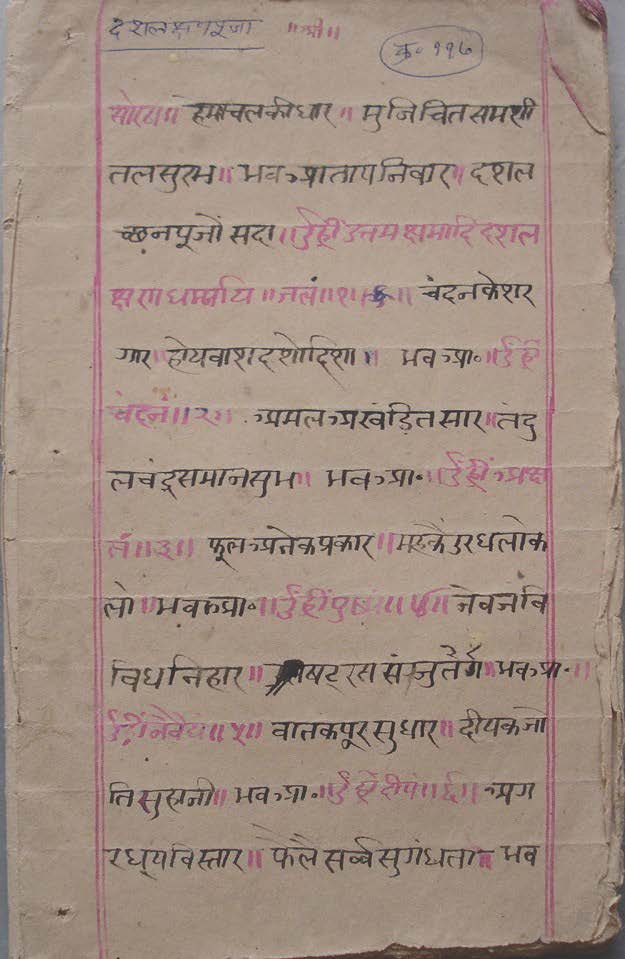 दशलक्षणपूजा ॥श्री॥ क्र॰ ११७
सोरठा॥ हेमाचलकीधार॥ मुनिचितसमशी
तलसुरभ॥ भवआतापनिवार॥ दशल
च्छनपूजौंसदा॥ ॐह्रींउत्तमक्षमादिदशल
क्षणधर्माय॥ जलं॥१॥ चंदनकेशर
गार॥ होयवाशदशोदिशा॥ भवआ॰॥ ॐह्रीं
चंदनं॥२॥ अमलअखंडितसार॥ तंदु
लचंद्रसमानसुभ॥ भवआ॰॥ ॐह्रींअक्ष
तं॥३॥ फूलअनेकप्रकार॥ महकैउरधलोक
लो॥ भवआ॰॥ ॐह्रींपुष्पं॥४॥ नेवजवि
विधनिहार॥ षट्रससंजुतैर्ग॥ भवआ॰॥
ॐह्रींनैवैद्यं॥५॥ वातकपूरसुधार॥ दीपकजो
तिसुहानी॥ भवआ॰॥ ॐह्रींदीपं॥६॥ अग
रधूपविस्तार॥ फैलैसर्व्वसुगंधता॥ भव